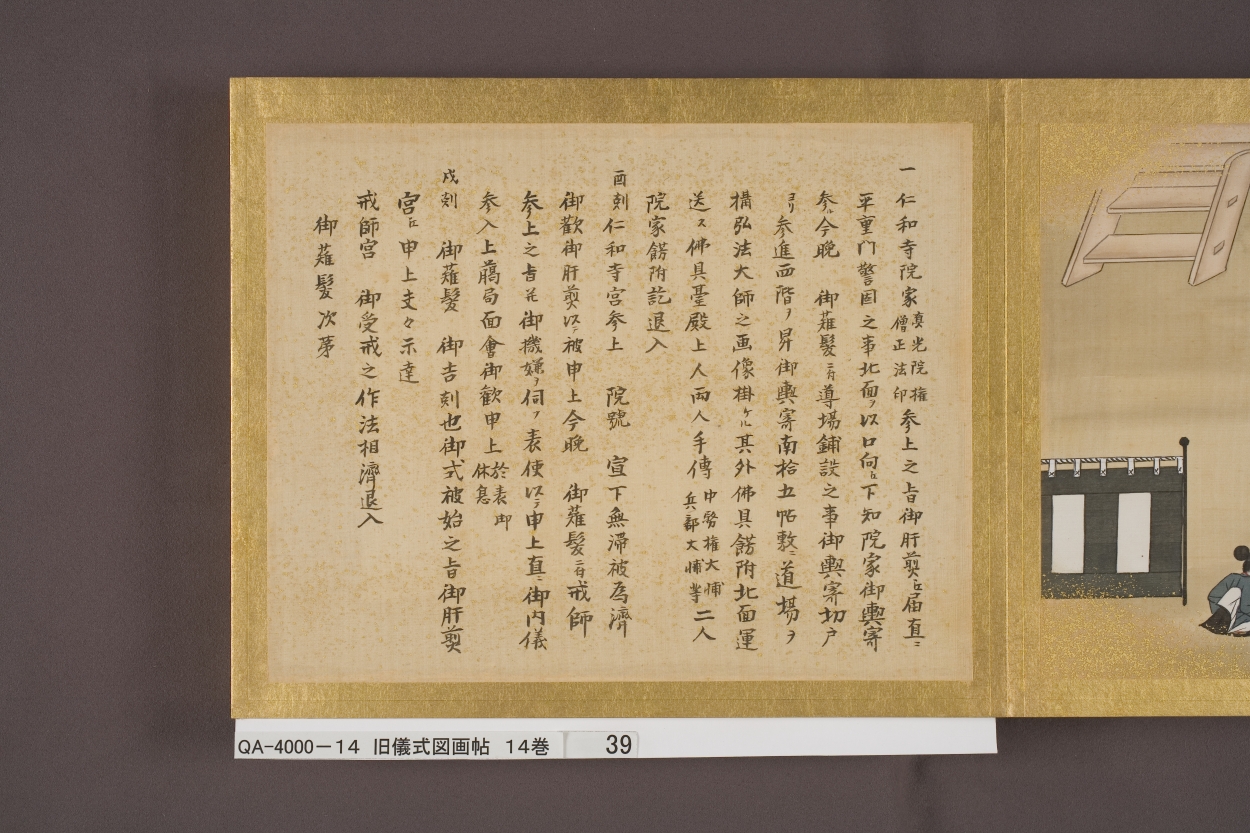 一仁和寺院家真光院権僧正法印参上之旨御肝煎ニ届直ニ
平重門警固之事北面ヲ以口向ニ下知院家御輿寄
参ル今晩　御薙髪ニ付導場鋪設之事御輿寄切戸
ヨリ参進西階ヲ昇御輿寄南拾五帖敷ニ道場ヲ
構弘法大師之画像掛ケル其外佛具餝附北面運
送ス佛具臺殿上人両人手傳中務権大輔兵部大輔等二人
院家餝附訖退入
酉刻仁和寺宮参上　院號　宣下無滞被為濟
御歡御肝煎以テ被申上今晩　御薙髪ニ付戒師
参上之旨并御機嫌ヲ伺フ表使以テ申上直ニ御内儀
参入上臈局面會御歡申上於表御休息
戌刻　御薙髪　御吉刻也御式被始之旨御肝煎
宮ニ申上支々示達
戒師宮　御受戒之作法相濟退入
御薙髪次第
QA-4000-14 旧儀式図画帖 14巻 39